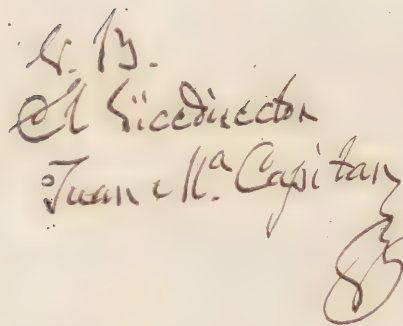 V. B.
El Vicedirector
Juan Mª. Capitan